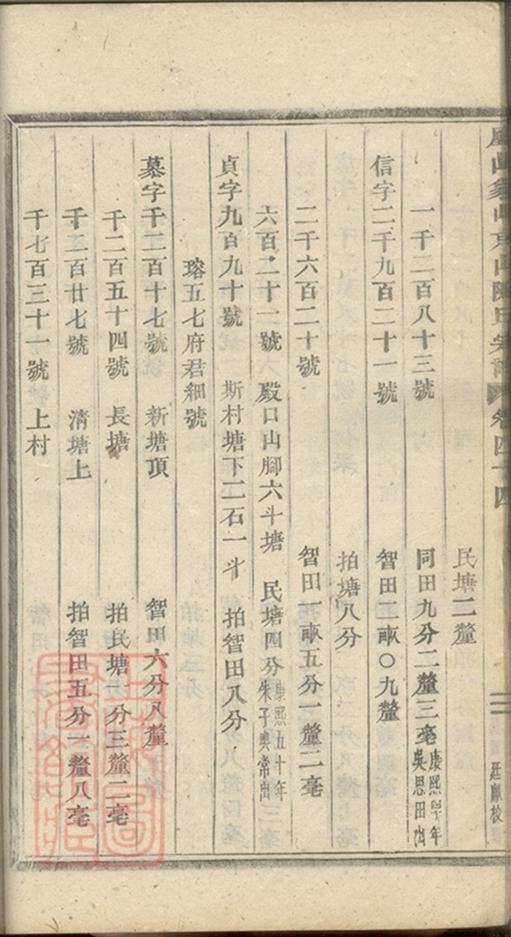 民塘二釐
一千二百八十三號 同田九分二釐三毫
信字二千九百二十一號 智田一畝〇九釐
拍塘八分
二千六百二十號 智田一畝五分一釐二毫
六百二十一號 殿口山腳六斗塘 民塘四分 康熙五十年
貞字九百九十號 斯村塘下二石一斗 拍智田八分
瑢五七府君細號
慕字千二百十七號 新塘頂 智田六分八釐
千二百五十四號 長塘 拍民塘一分三釐二毫
千二百廿七號 清塘上 拍智田五分一釐八毫
千七百三十一號 上村